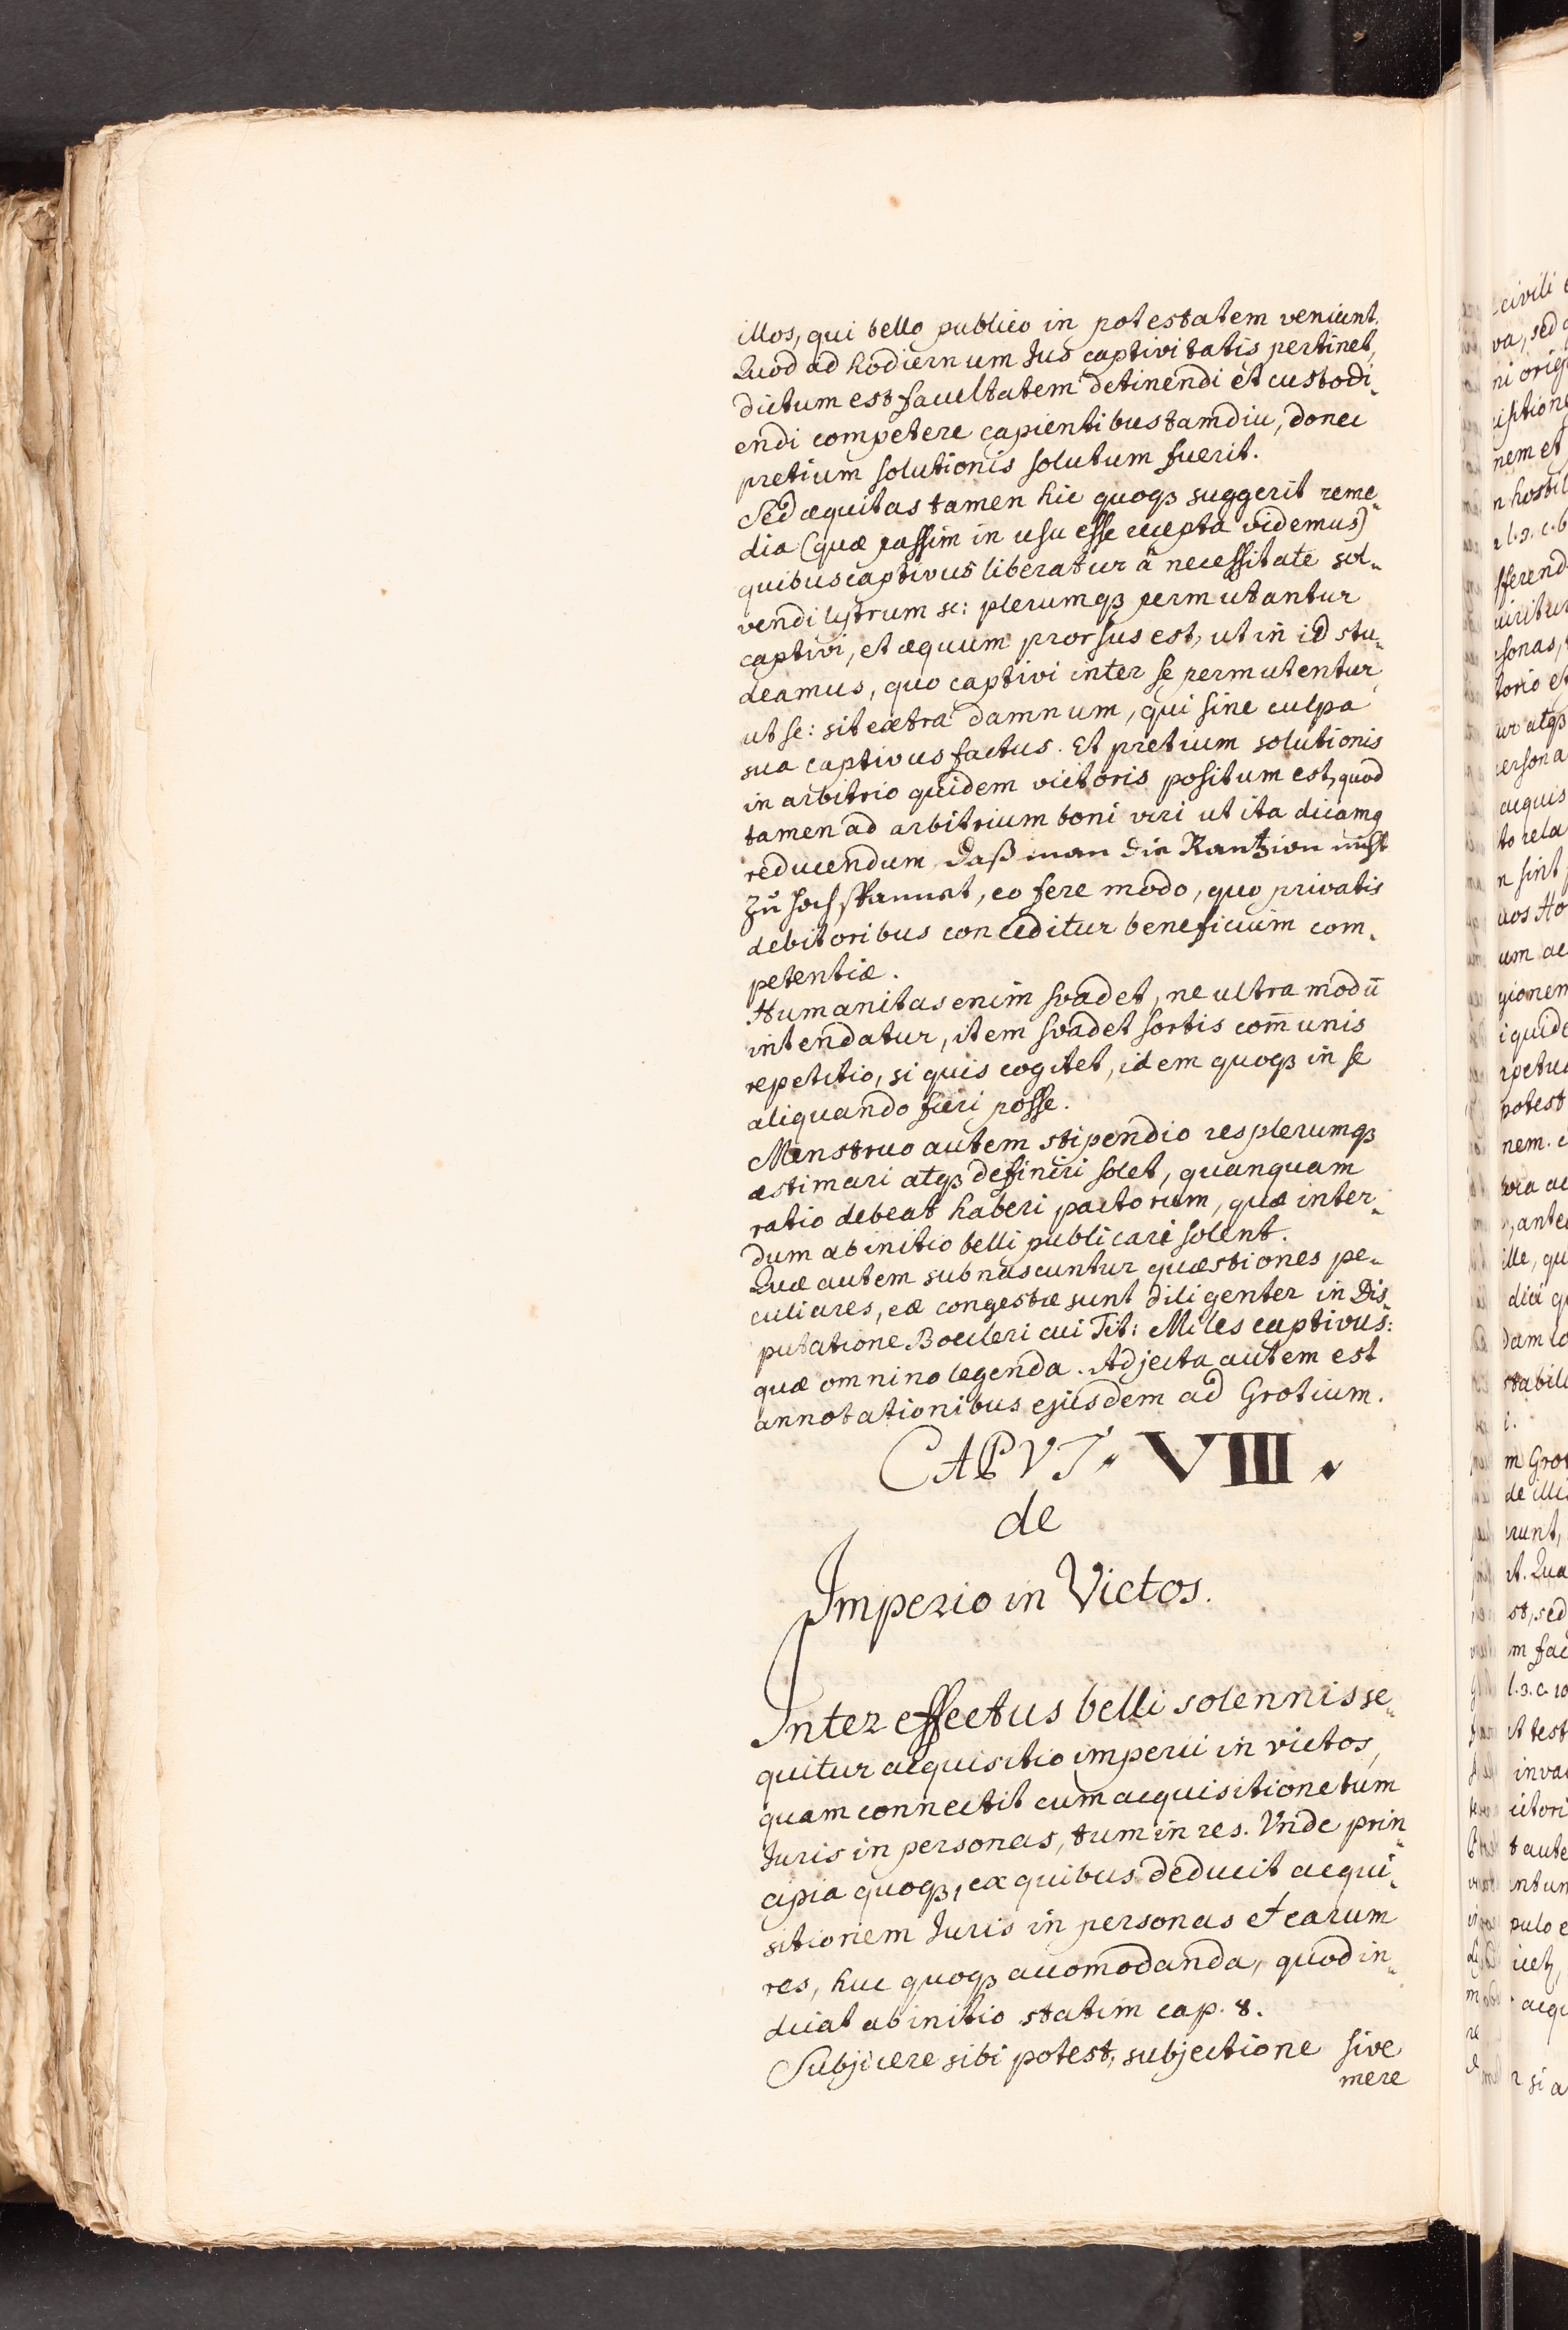 illos, qui bello publico in potestatem veniunt.
Quod ad hodiernum Jus captivitatis pertinet,
dictum est facultatem detinendi et custodi„
endi competere capientibus tamdiu, donec
pretium solutionis solutum fuerit.
Sed æquitas tamen hic quoqꝫ suggerit reme„
dia (quæ passim in usu esse recepta videmus)
quibus captivus liberatur â necessitate sol„
vendi lytrum sc: plerumqꝫ permutantur
captivi, et æquum prorsus est, ut in id stu„
deamus, quo captivi inter se permutentur,
ut sc: sit extra damnum, qui sine culpa
sua captivus factus. Et pretium solutionis
in arbitrio quidem victoris positum est, quod
tamen ad arbitrium boni viri ut ita dicamꝰ
reducendum, daß man die Rantzion nicht
zu hoch spannet, eo fere modo, quo privatis
debitoribus conceditur beneficium com„
petentiæ.
Humanitas enim svadet, ne ultra modū
intendatur, item svadet sortis com̄unis
repetitio, si quis cogitet, idem quoqꝫ in se
aliquando fieri posse.
Menstruo autem stipendio res plerumqꝫ
æstimari atqꝫ definiri solet, quanquam
ratio debeat haberi pactorum, quæ inter„
dum ab initio belli publicari solent.
Quæ autem subnascuntur quæstiones pe„
culiares, eæ congestæ sunt diligenter in Dis„
putatione Boecleri cui Tit: Miles captivus:
quæ omnino legenda. Adjecta autem est
annotationibus ejusdem ad Grotium.
CAPVT. VIII.
de
Imperio in Victos.
Inter effectus belli solennis se„
quitur acquisitio imperii in victos,
quam connectit cum acquisitione tum
Juris in personas, tum in res. Vnde prin„
cipia quoqꝫ, ex quibus deducit acqui„
sitionem Juris in personas et earum
res, huc quoqꝫ accomodanda, quod in„
dicat ab initio statim cap. 8.
Subjicere sibi potest, subjectione sive
mere